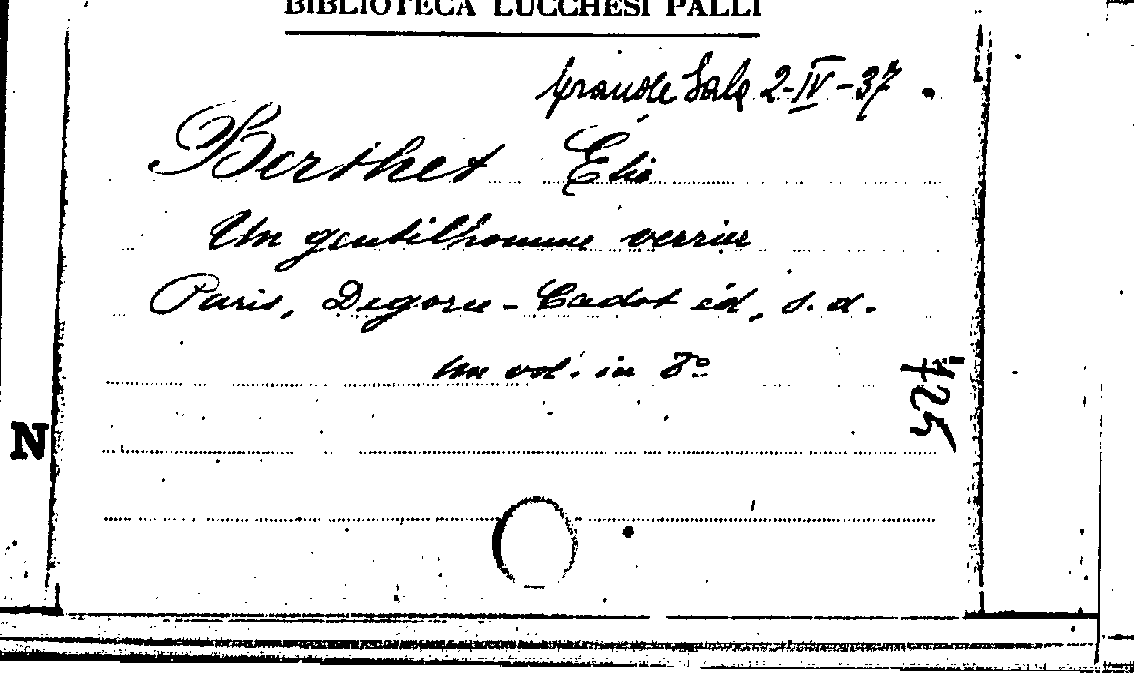 BIBLIOTECA LUCCHESI PALLI
Grande Sala 2-IV-37.
Berthet Élie
Un gentilhomme verrier
Paris, Degorce-Cadot éd, s. d.
un vol. in 8º
425
N